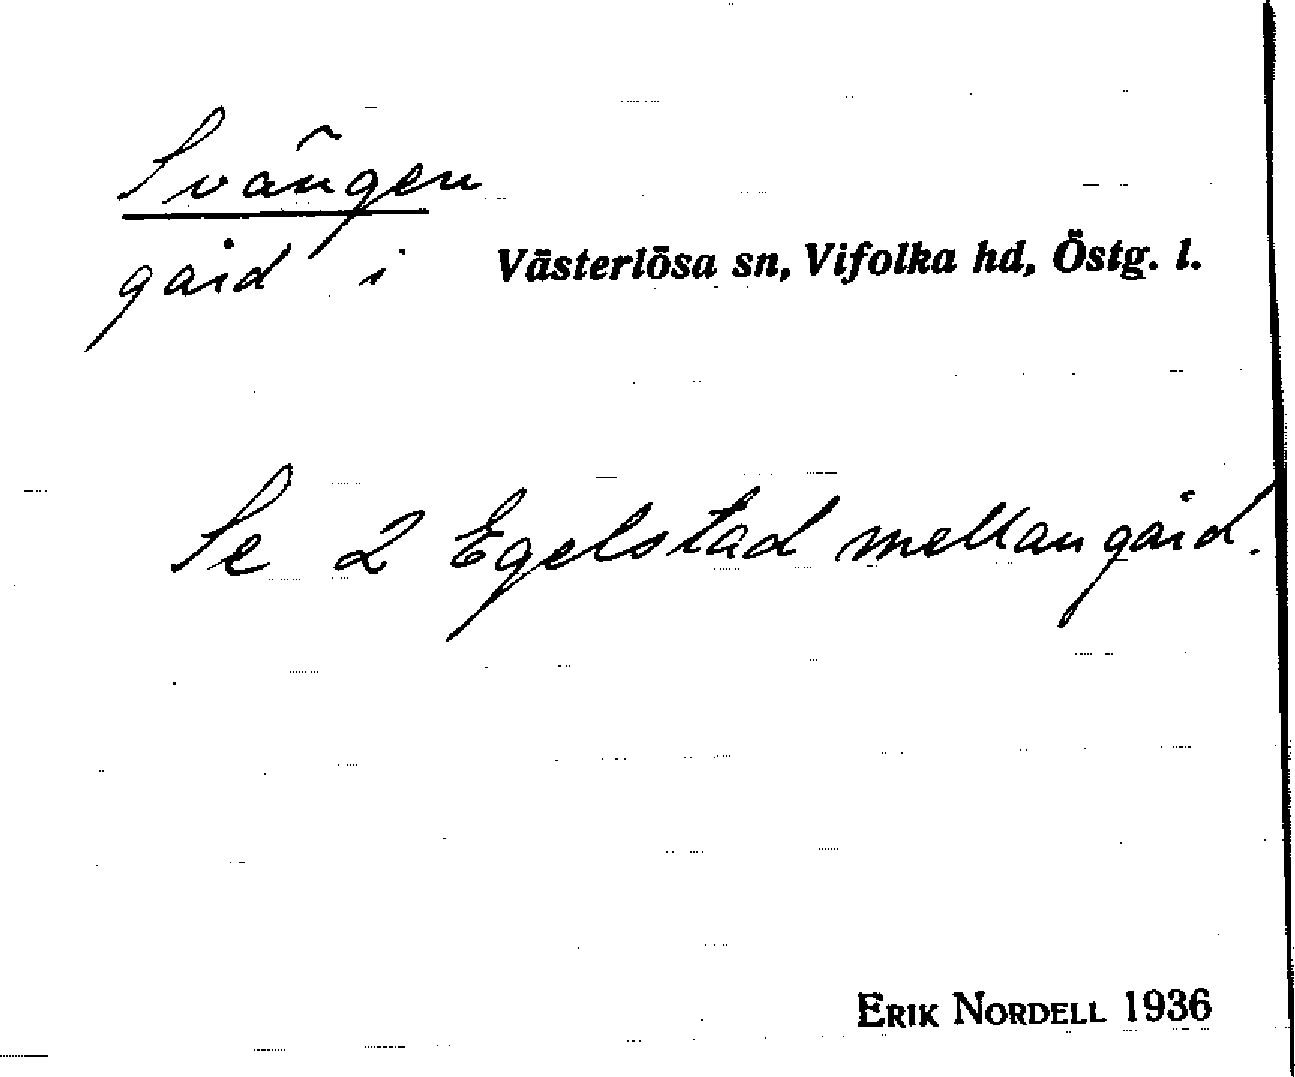 Svängen
gård i Västerlösa sn, Vifolka hd, Östg. l.
Se 2 Egelstad mellangård.
ERIK NORDELL 1936